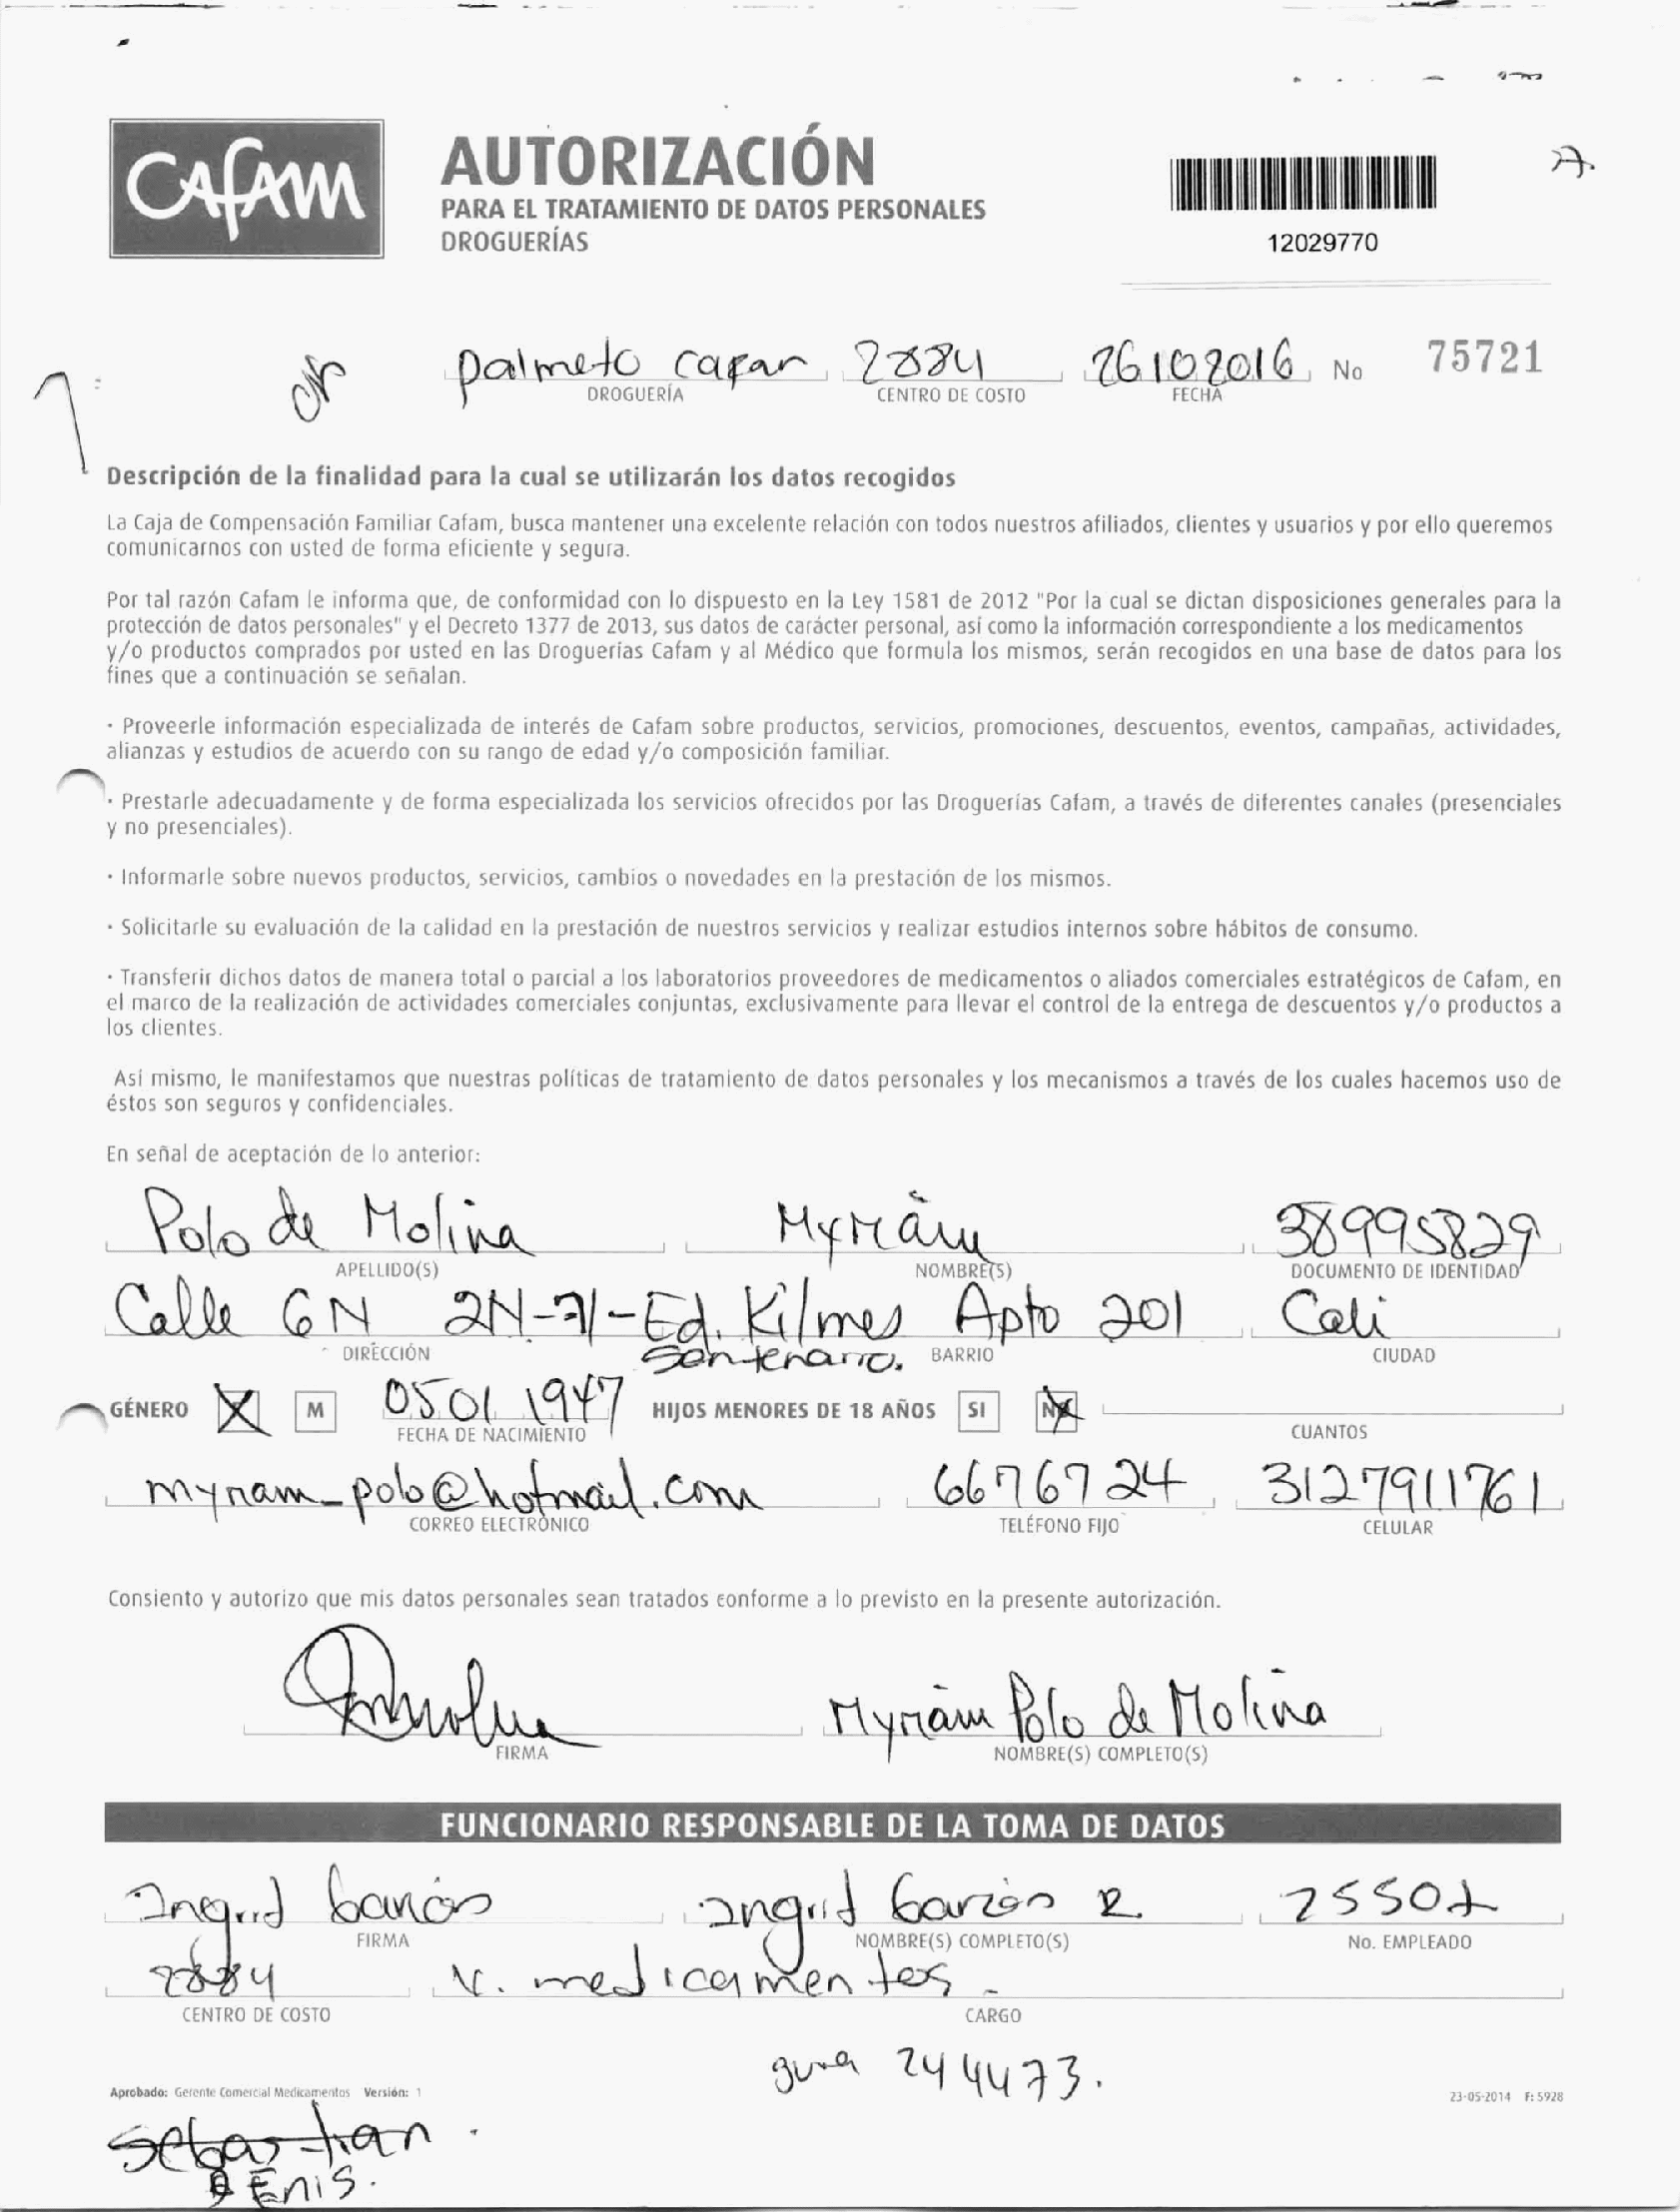 CAFAM
AUTORIZACIÓN
PARA EL TRATAMIENTO DE DATOS PERSONALES
DROGUERÍAS
12029770
palmeto cafan 2884 26102016 No 75721
DROGUERÍA CENTRO DE COSTO FECHA
Descripción de la finalidad para la cual se utilizarán los datos recogidos
La Caja de Compensación Familiar Cafam, busca mantener una excelente relación con todos nuestros afiliados, clientes y usuarios y por ello queremos
comunicarnos con usted de forma eficiente y segura.
Por tal razón Cafam le informa que, de conformidad con lo dispuesto en la Ley 1581 de 2012 "Por la cual se dictan disposiciones generales para la
protección de datos personales" y el Decreto 1377 de 2013, sus datos de carácter personal, así como la información correspondiente a los medicamentos
y/o productos comprados por usted en las Droguerías Cafam y al Médico que formula los mismos, serán recogidos en una base de datos para los
fines que a continuación se señalan.
· Proveerle información especializada de interés de Cafam sobre productos, servicios, promociones, descuentos, eventos, campañas, actividades,
alianzas y estudios de acuerdo con su rango de edad y/o composición familiar.
· Prestarle adecuadamente y de forma especializada los servicios ofrecidos por las Droguerías Cafam, a través de diferentes canales (presenciales
y no presenciales).
· Informarle sobre nuevos productos, servicios, cambios o novedades en la prestación de los mismos.
· Solicitarle su evaluación de la calidad en la prestación de nuestros servicios y realizar estudios internos sobre hábitos de consumo.
· Transferir dichos datos de manera total o parcial a los laboratorios proveedores de medicamentos o aliados comerciales estratégicos de Cafam, en
el marco de la realización de actividades comerciales conjuntas, exclusivamente para llevar el control de la entrega de descuentos y/o productos a
los clientes.
Así mismo, le manifestamos que nuestras políticas de tratamiento de datos personales y los mecanismos a través de los cuales hacemos uso de
éstos son seguros y confidenciales.
En señal de aceptación de lo anterior:
Polo de Molina Myriam 38995829
APELLIDO(S) NOMBRE(S) DOCUMENTO DE IDENTIDAD
Calle 6N 2N-71-Ed. Kilmes Apto 201 Cali
DIRECCIÓN Santenario. BARRIO CIUDAD
GÉNERO X M 05011947 HIJOS MENORES DE 18 AÑOS SI NO
FECHA DE NACIMIENTO CUANTOS
myriam_polo@hotmail.com 6676724 3127911761
CORREO ELECTRÓNICO TELÉFONO FIJO CELULAR
Consiento y autorizo que mis datos personales sean tratados conforme a lo previsto en la presente autorización.
Myriam Polo de Molina
FIRMA NOMBRE(S) COMPLETO(S)
FUNCIONARIO RESPONSABLE DE LA TOMA DE DATOS
Ingrid Garzón Ingrid Garzón R 25507
FIRMA NOMBRE(S) COMPLETO(S) No. EMPLEADO
2884 V. medicamentos.
CENTRO DE COSTO CARGO
guia 244473.
Aprobado: Gerente Comercial Medicamentos Versión: 1
23-05-2014 F: 5928
Sebastian
DEnis.